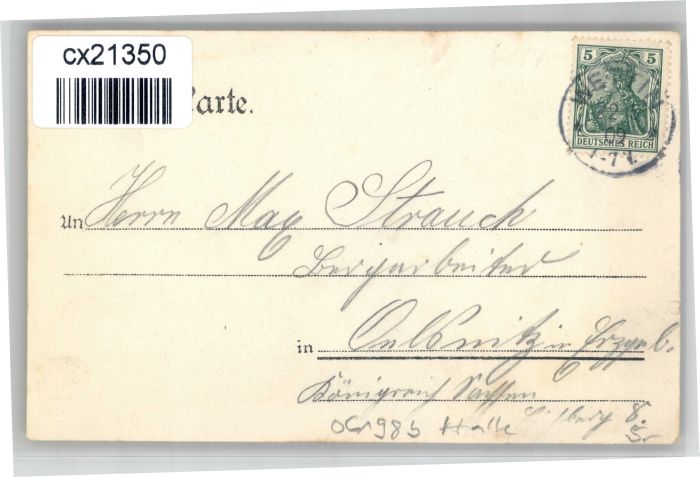 cx21350
Karte.
5 5
DEUTSCHES REICH
09
An Herrn Max Strauch
Bergarbeiter
in Oelsnitz i. Erzgeb.
Königreich Sachsen
Halle